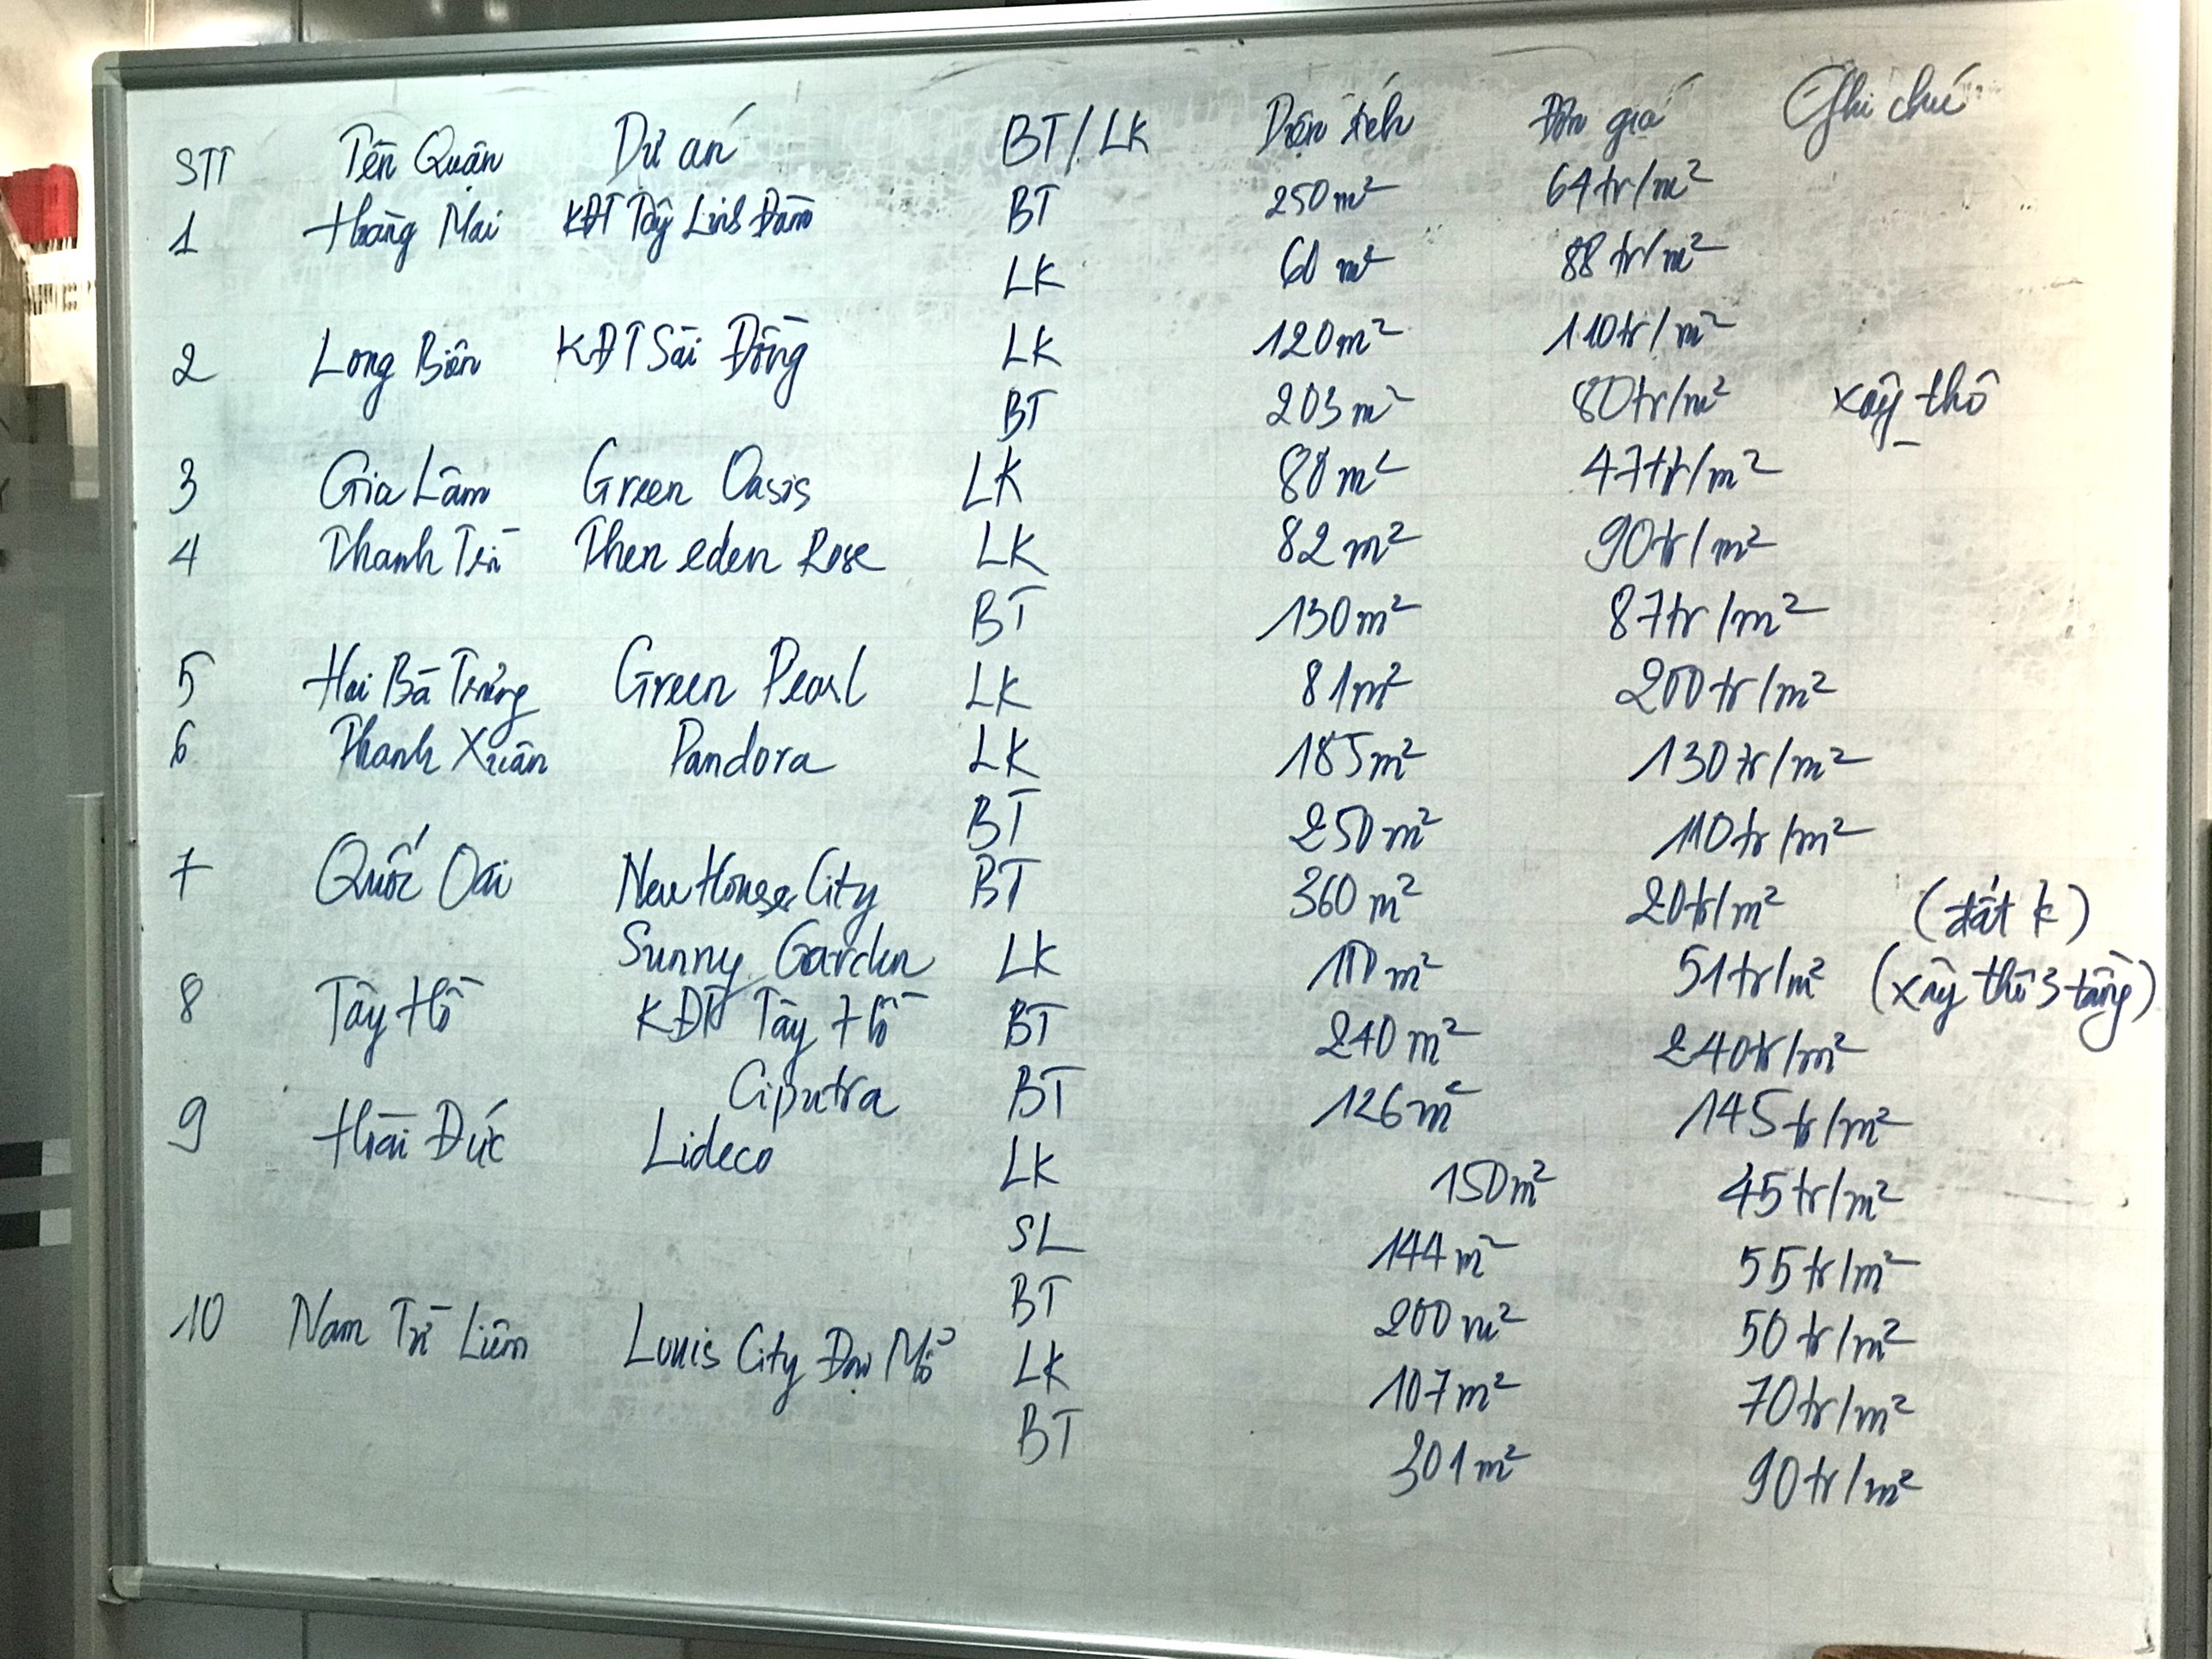 STT Tên Quận Dự án BT/LK Diện tích Đơn giá Ghi chú
1 Hoàng Mai KĐT Tây Linh Đàm BT 250m² 64tr/m²
LK 60m² 88tr/m²
2 Long Biên KĐT Sài Đồng LK 120m² 110tr/m²
BT 203m² 80tr/m² xây thô
3 Gia Lâm Green Oasis LK 80m² 47tr/m²
4 Thanh Trì Then eden Rose LK 82m² 90tr/m²
BT 130m² 87tr/m²
5 Hai Bà Trưng Green Pearl LK 81m² 200tr/m²
6 Thanh Xuân Pandora LK 185m² 130tr/m²
BT 250m² 110tr/m²
7 Quốc Oai New House City BT 360m² 20tr/m² (đất k)
Sunny Garden LK 100m² 51tr/m² (xây thô 3 tầng)
8 Tây Hồ KĐT Tây Hồ BT 240m² 240tr/m²
Ciputra BT 126m² 145tr/m²
9 Hoài Đức Lideco LK 150m² 45tr/m²
SL 144m² 55tr/m²
BT 200m² 50tr/m²
10 Nam Từ Liêm Louis City Đại Mỗ LK 107m² 70tr/m²
BT 301m² 90tr/m²